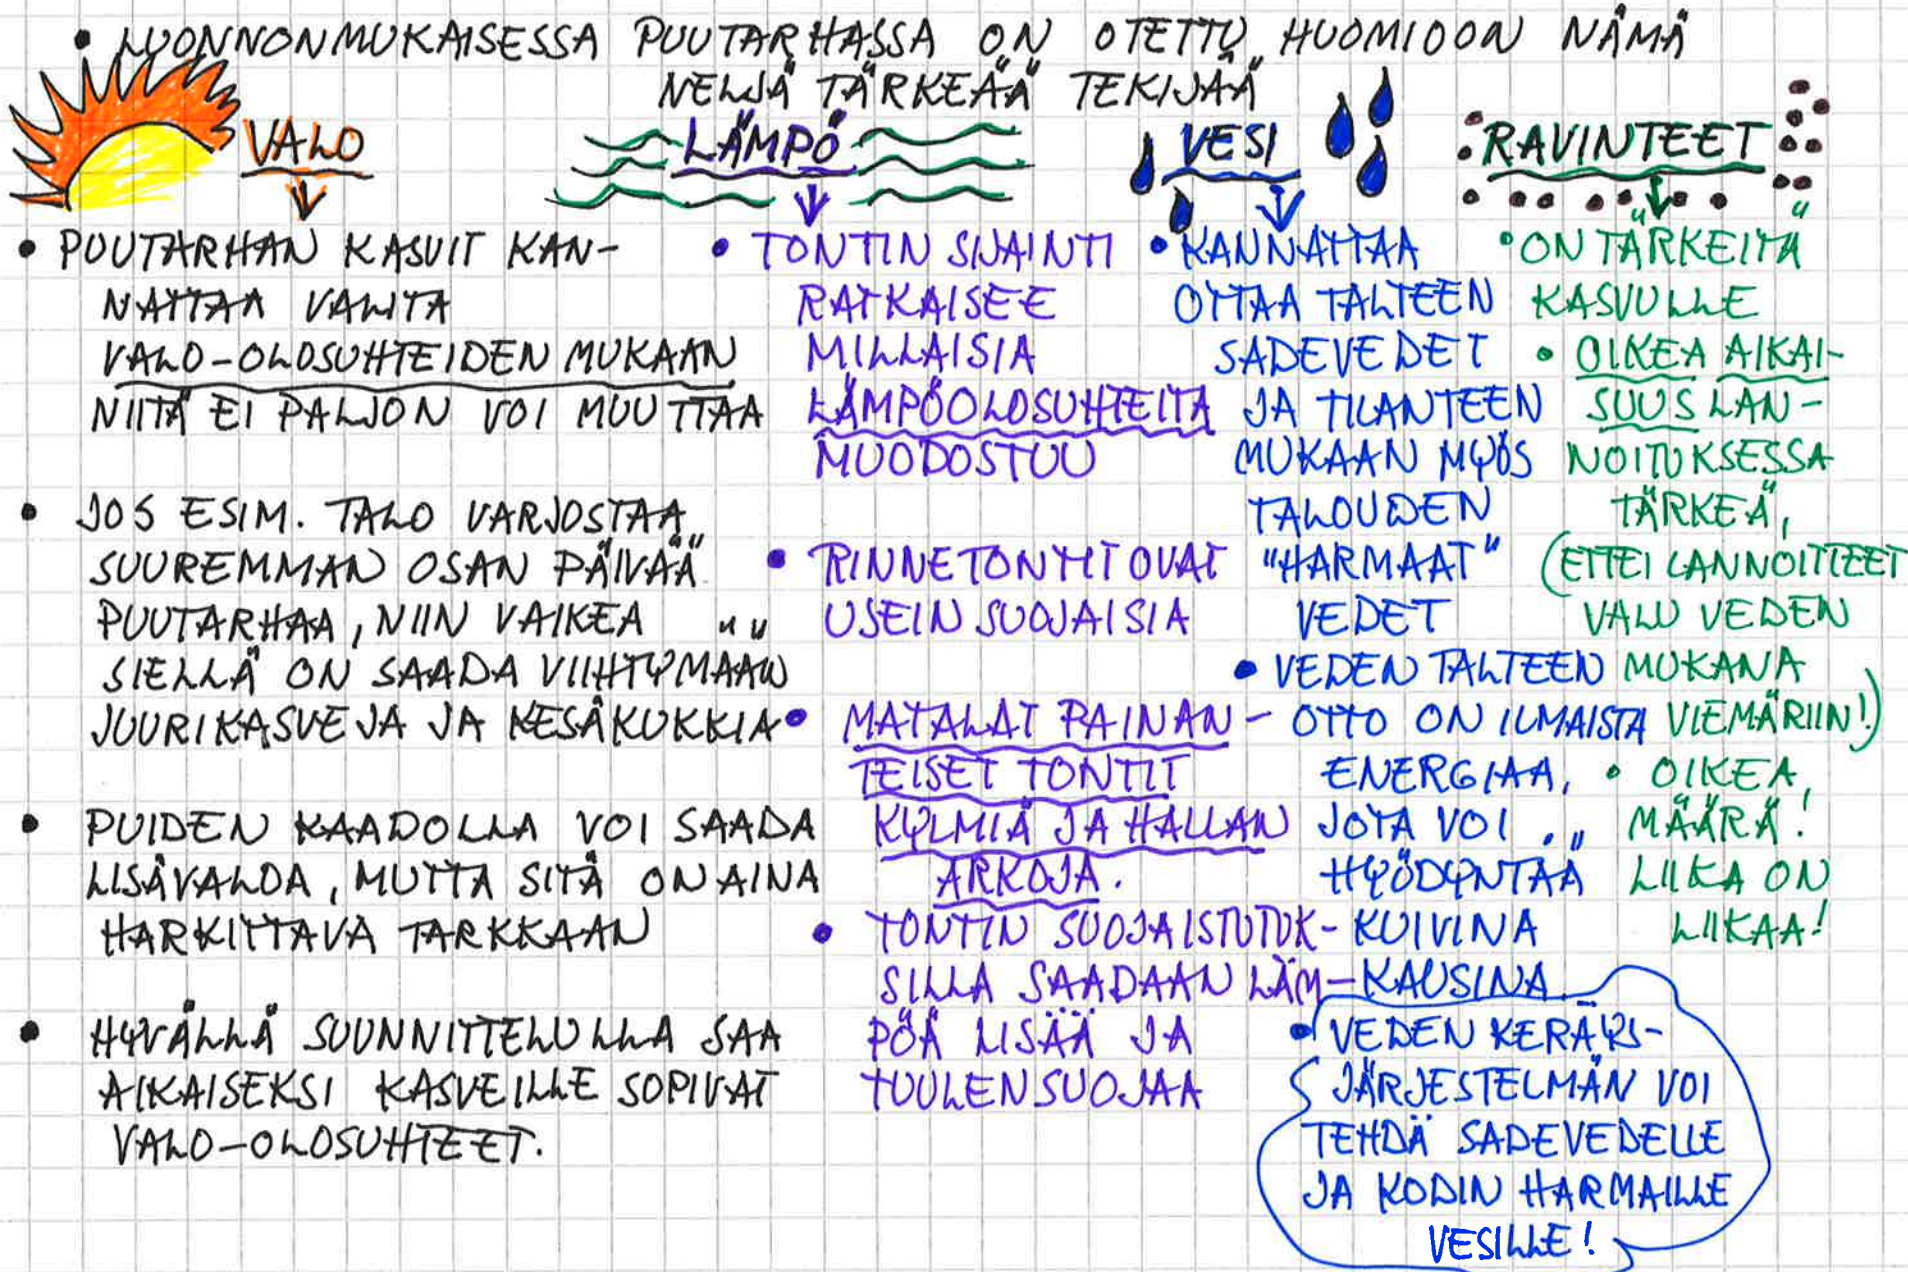 • LUONNONMUKAISESSA PUUTARHASSA ON OTETTU HUOMIOON NÄMÄ
NELJÄ TÄRKEÄÄ TEKIJÄÄ
VALO
• PUUTARHAN KASVIT KAN-
NATTAA VALITA
VALO-OLOSUHTEIDEN MUKAAN
NIITÄ EI PALJON VOI MUUTTAA
• JOS ESIM. TALO VARJOSTAA
SUUREMMAN OSAN PÄIVÄÄ
PUUTARHAA, NIIN VAIKEA
SIELLÄ ON SAADA VIIHTYMÄÄN
JUURIKASVEJA JA KESÄKUKKIA
• PUIDEN KAADOLLA VOI SAADA
LISÄVALOA, MUTTA SITÄ ON AINA
HARKITTAVA TARKKAAN
• HYVÄLLÄ SUUNNITTELULLA SAA
AIKAISEKSI KASVEILLE SOPIVAT
VALO-OLOSUHTEET.
LÄMPÖ
• TONTIN SIJAINTI
RATKAISEE
MILLAISIA
LÄMPÖOLOSUHTEITA
MUODOSTUU
• RINNETONTIT OVAT
USEIN SUOJAISIA
• MATALAT PAINAN-
TEISET TONTIT
KYLMIÄ JA HALLAN
ARKOJA.
• TONTIN SUOJAISTUTUK-
SILLA SAADAAN LÄM-
PÖÄ LISÄÄ JA
TUULENSUOJAA
VESI
• KANNATTAA
OTTAA TALTEEN
SADEVEDET
JA TILANTEEN
MUKAAN MYÖS
TALOUDEN
"HARMAAT"
VEDET
• VEDEN TALTEEN
OTTO ON ILMAISTA
ENERGIAA,
JOTA VOI
HYÖDYNTÄÄ
KUIVINA
KAUSINA
• VEDEN KERÄYS-
JÄRJESTELMÄN VOI
TEHDÄ SADEVEDELLE
JA KODIN HARMAILLE
VESILLE!
RAVINTEET
• ON TÄRKEITÄ
KASVULLE
• OIKEA AIKAI-
SUUS LAN-
NOITUKSESSA
TÄRKEÄ,
(ETTEI LANNOITTEET
VALU VEDEN
MUKANA
VIEMÄRIIN!)
• OIKEA
MÄÄRÄ!
LIIKA ON
LIIKAA!